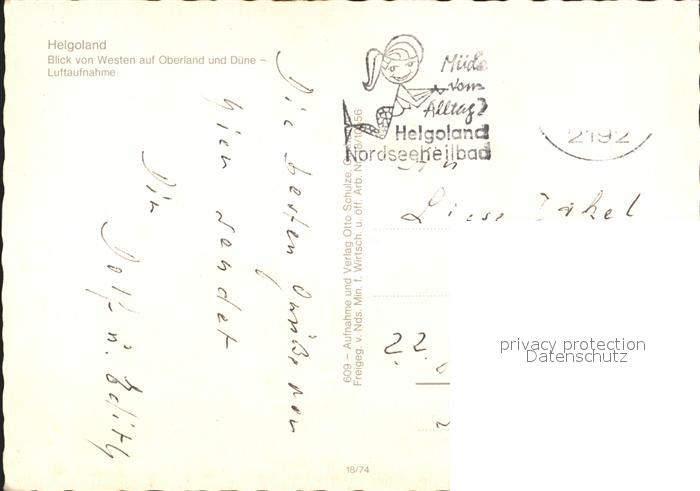 Helgoland
Blick von Westen auf Oberland und Düne –
Luftaufnahme
Müde
vom
Alltag?
Helgoland
Nordseeheilbad
2192
Die besten Grüße von
hier sendet
Dir
Rolf u. Edith
609 – Aufnahme und Verlag Otto Schulze,
Freigeg. v. Nds. Min. f. Wirtsch. u. öff. Arb. Nr.
An
22
18/74
privacy protection
Datenschutz